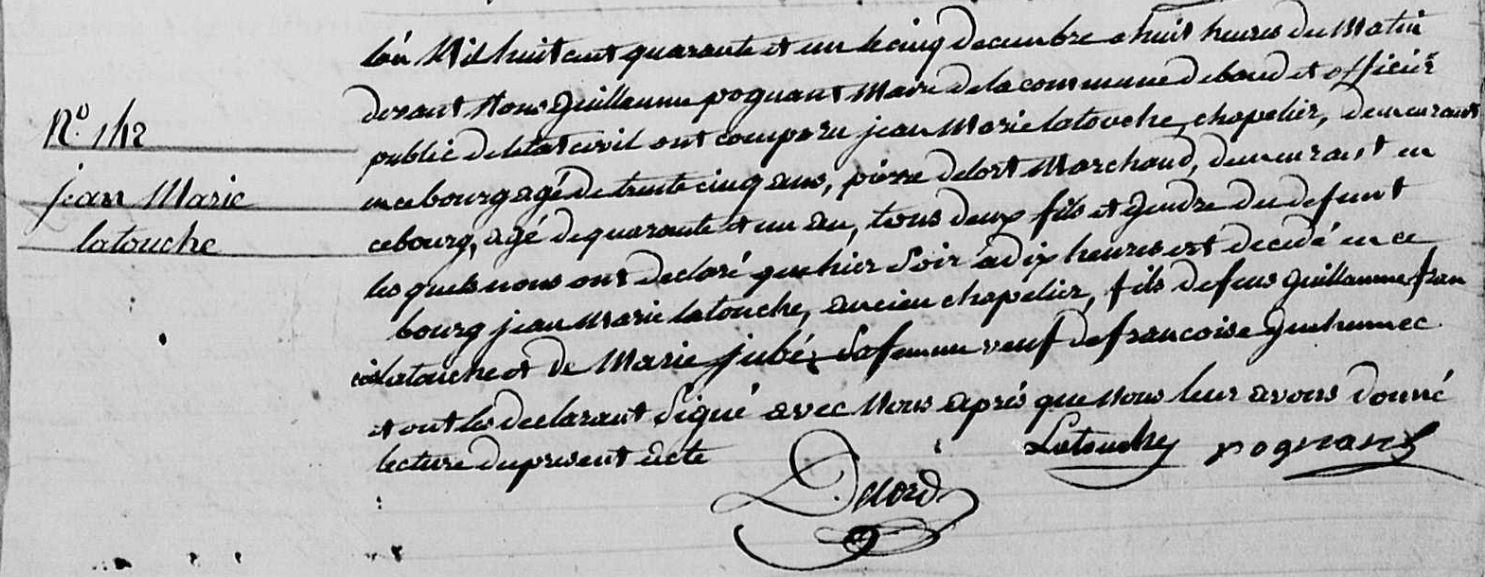 N.º 142
jean Marie
latouche
L'an Mil huit cent quarante et un le cinq decembre a huit heures du Matin
devant Nous Guillaume pognant Maire de la commune de baud et officier
public de letat civil ont comparu jean Marie latouche, chapelier, demeurant
en ce bourg agé de trente cinq ans, pierre delort Marchand, demeurant en
ce bourg, agé de quarante et un an, tous deux fils et gendre du defunt
les quels nous ont declaré que hier soir a dix heures est decedé en ce
bourg jean Marie latouche, ancien chapelier, fils de feus Guillaume fran
cois latouche et de Marie jubé, sa femme veuf de francoise Guehennec
et ont les declarant signé avec Nous aprés que Nous leur avons donné
lecture du present acte
Latouche pognant
Delord